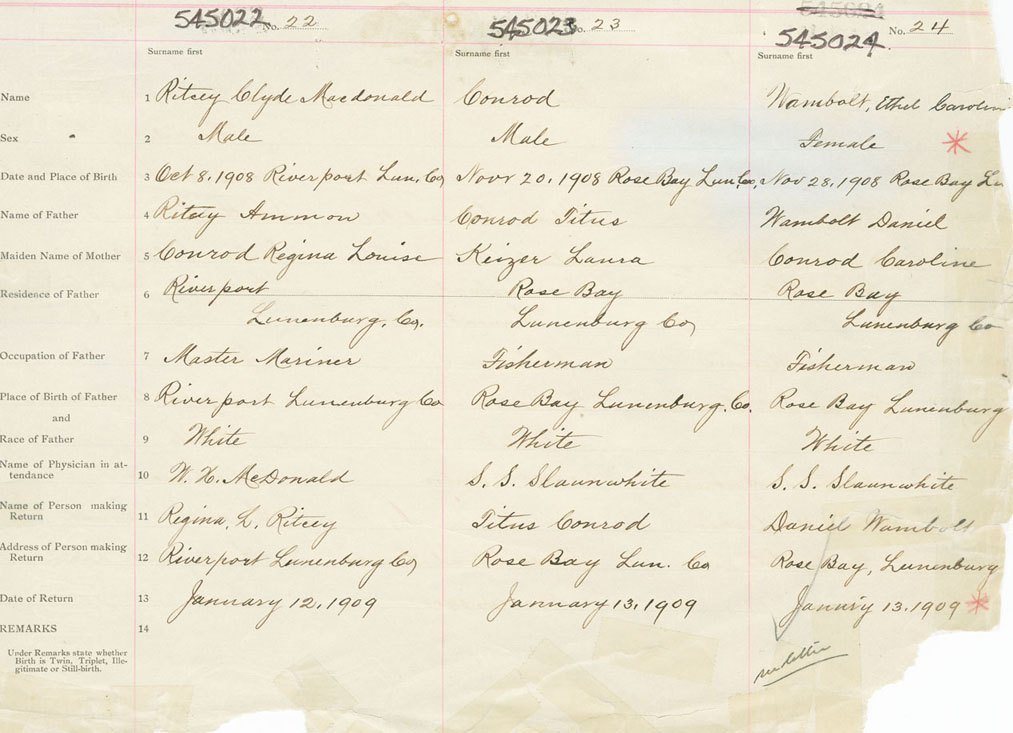 545022 No. 22 545023 No. 23 545024 No. 24
545024
Surname first Surname first Surname first
Name 1 Ritcey Clyde Macdonald Conrod Wambolt, Ethel Carolin
Sex 2 Male Male Female *
Date and Place of Birth 3 Oct 8, 1908 Riverport Lun. Co, Novr 20, 1908 Rose Bay Lun. Co, Nov 28, 1908 Rose Bay Lu
Name of Father 4 Ritcey Ammon Conrod Titus Wambolt Daniel
Maiden Name of Mother 5 Conrod Regina Louise Keizer Laura Conrod Caroline
Residence of Father 6 Riverport Rose Bay Rose Bay
Lunenburg, Co. Lunenburg Co, Lunenburg Co
Occupation of Father 7 Master Mariner Fisherman Fisherman
Place of Birth of Father 8 Riverport Lunenburg Co Rose Bay Lunenburg. Co. Rose Bay Lunenburg
and
Race of Father 9 White White White
Name of Physician in at-
tendance 10 W. H. McDonald S. S. Slaunwhite S. S. Slaunwhite
Name of Person making
Return 11 Regina, L. Ritcey Titus Conrod Daniel Wambolt
Address of Person making
Return 12 Riverport Lunenburg Co, Rose Bay Lun. Co Rose Bay, Lunenburg
Date of Return 13 January 12, 1909 January 13, 1909 Januiry 13, 1909 *
REMARKS 14
Under Remarks state whether
Birth is Twin, Triplet, Ille-
gitimate or Still-birth.